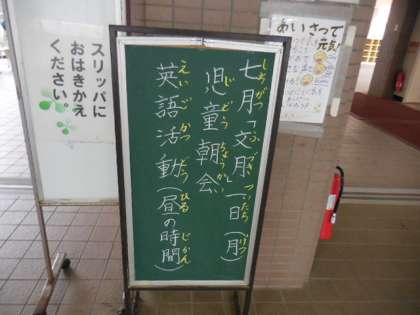 スリッパに
おはきかえ
ください。
七月「文月」一日(月)
しちがつ ふづき ついたち げつ
児童朝会
じどうちょうかい
英語活動(昼の時間)
えいごかつどう ひる じかん
あいさつで
元気